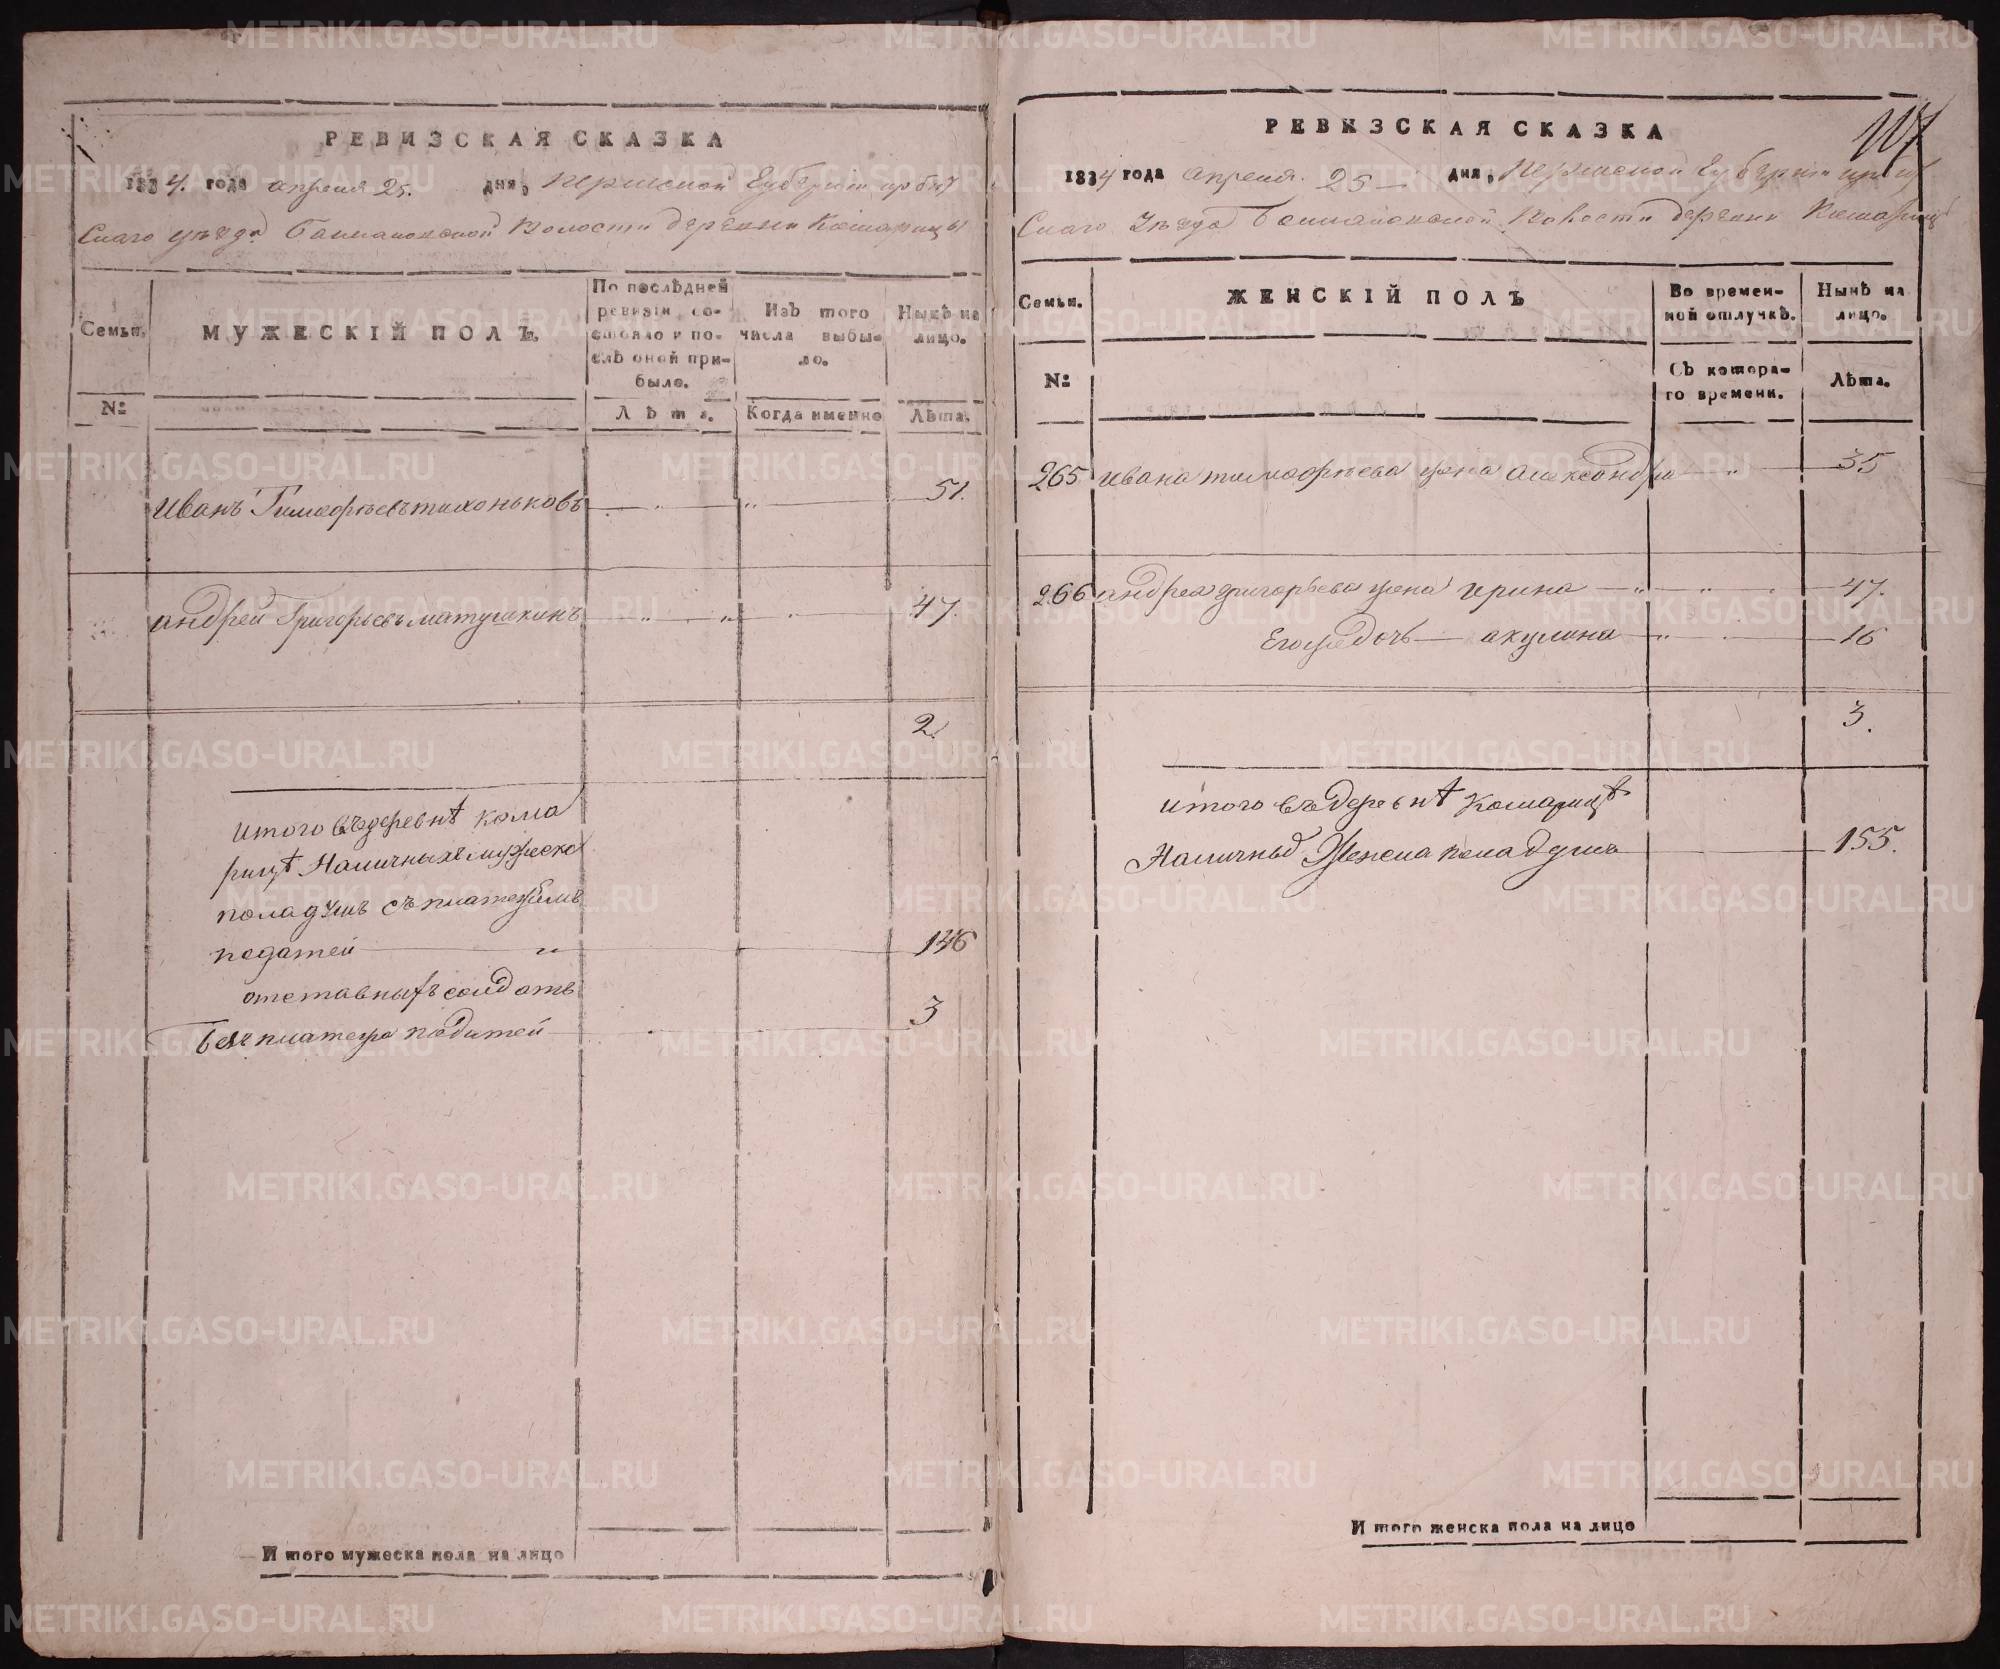 РЕВИЗСКАЯ СКАЗКА
1834. года апреля 25. дня, Пермской Губернии ирбит
скаго уезда Волости деревни Комарицы
Семьи.
№
МУЖЕСКІЙ ПОЛЪ.
По послѣдней ревизіи состояло и послѣ оной прибыло.
Лѣта.
Изъ того числа выбыло.
Когда именно
Нынѣ на лицо.
Лѣта.
Иванъ Тимофѣевъ тихоньковъ 51.
андрей Григорьевъ матушкинъ 47.
2.
итого въ деревнѣ кома
рицѣ Наличныхъ мужеска
пола душъ съ платежемъ
податей 146
отставныхъ солдатъ
безъ платежа податей 3
И того мужеска пола на лицо
РЕВИЗСКАЯ СКАЗКА
1834 года апреля 25 дня, Пермской Губернии
скаго Уезда Волости деревни Комарицы
Семьи.
№
ЖЕНСКІЙ ПОЛЪ
Во временной отлучкѣ.
Съ котораго времени.
Нынѣ на лицо.
Лѣта.
265 ивана тимофѣева жена александра 35
266 андрея григорьева жена ирина 47.
Его же дочь акулина 16
3.
итого въ деревнѣ Комарицѣ
Наличныхъ Женска пола душъ 155.
И того женска пола на лицо
METRIKI.GASO-URAL.RU